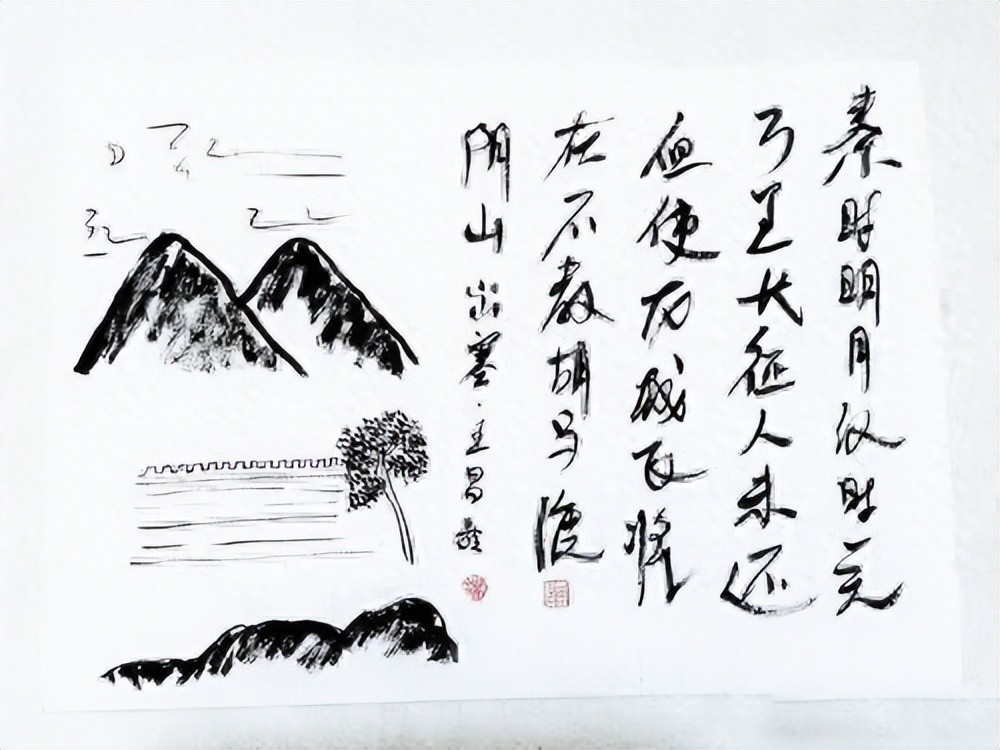 秦时明月汉时关
万里长征人未还
但使龙城飞将
在不教胡马渡
阴山 出塞·王昌龄